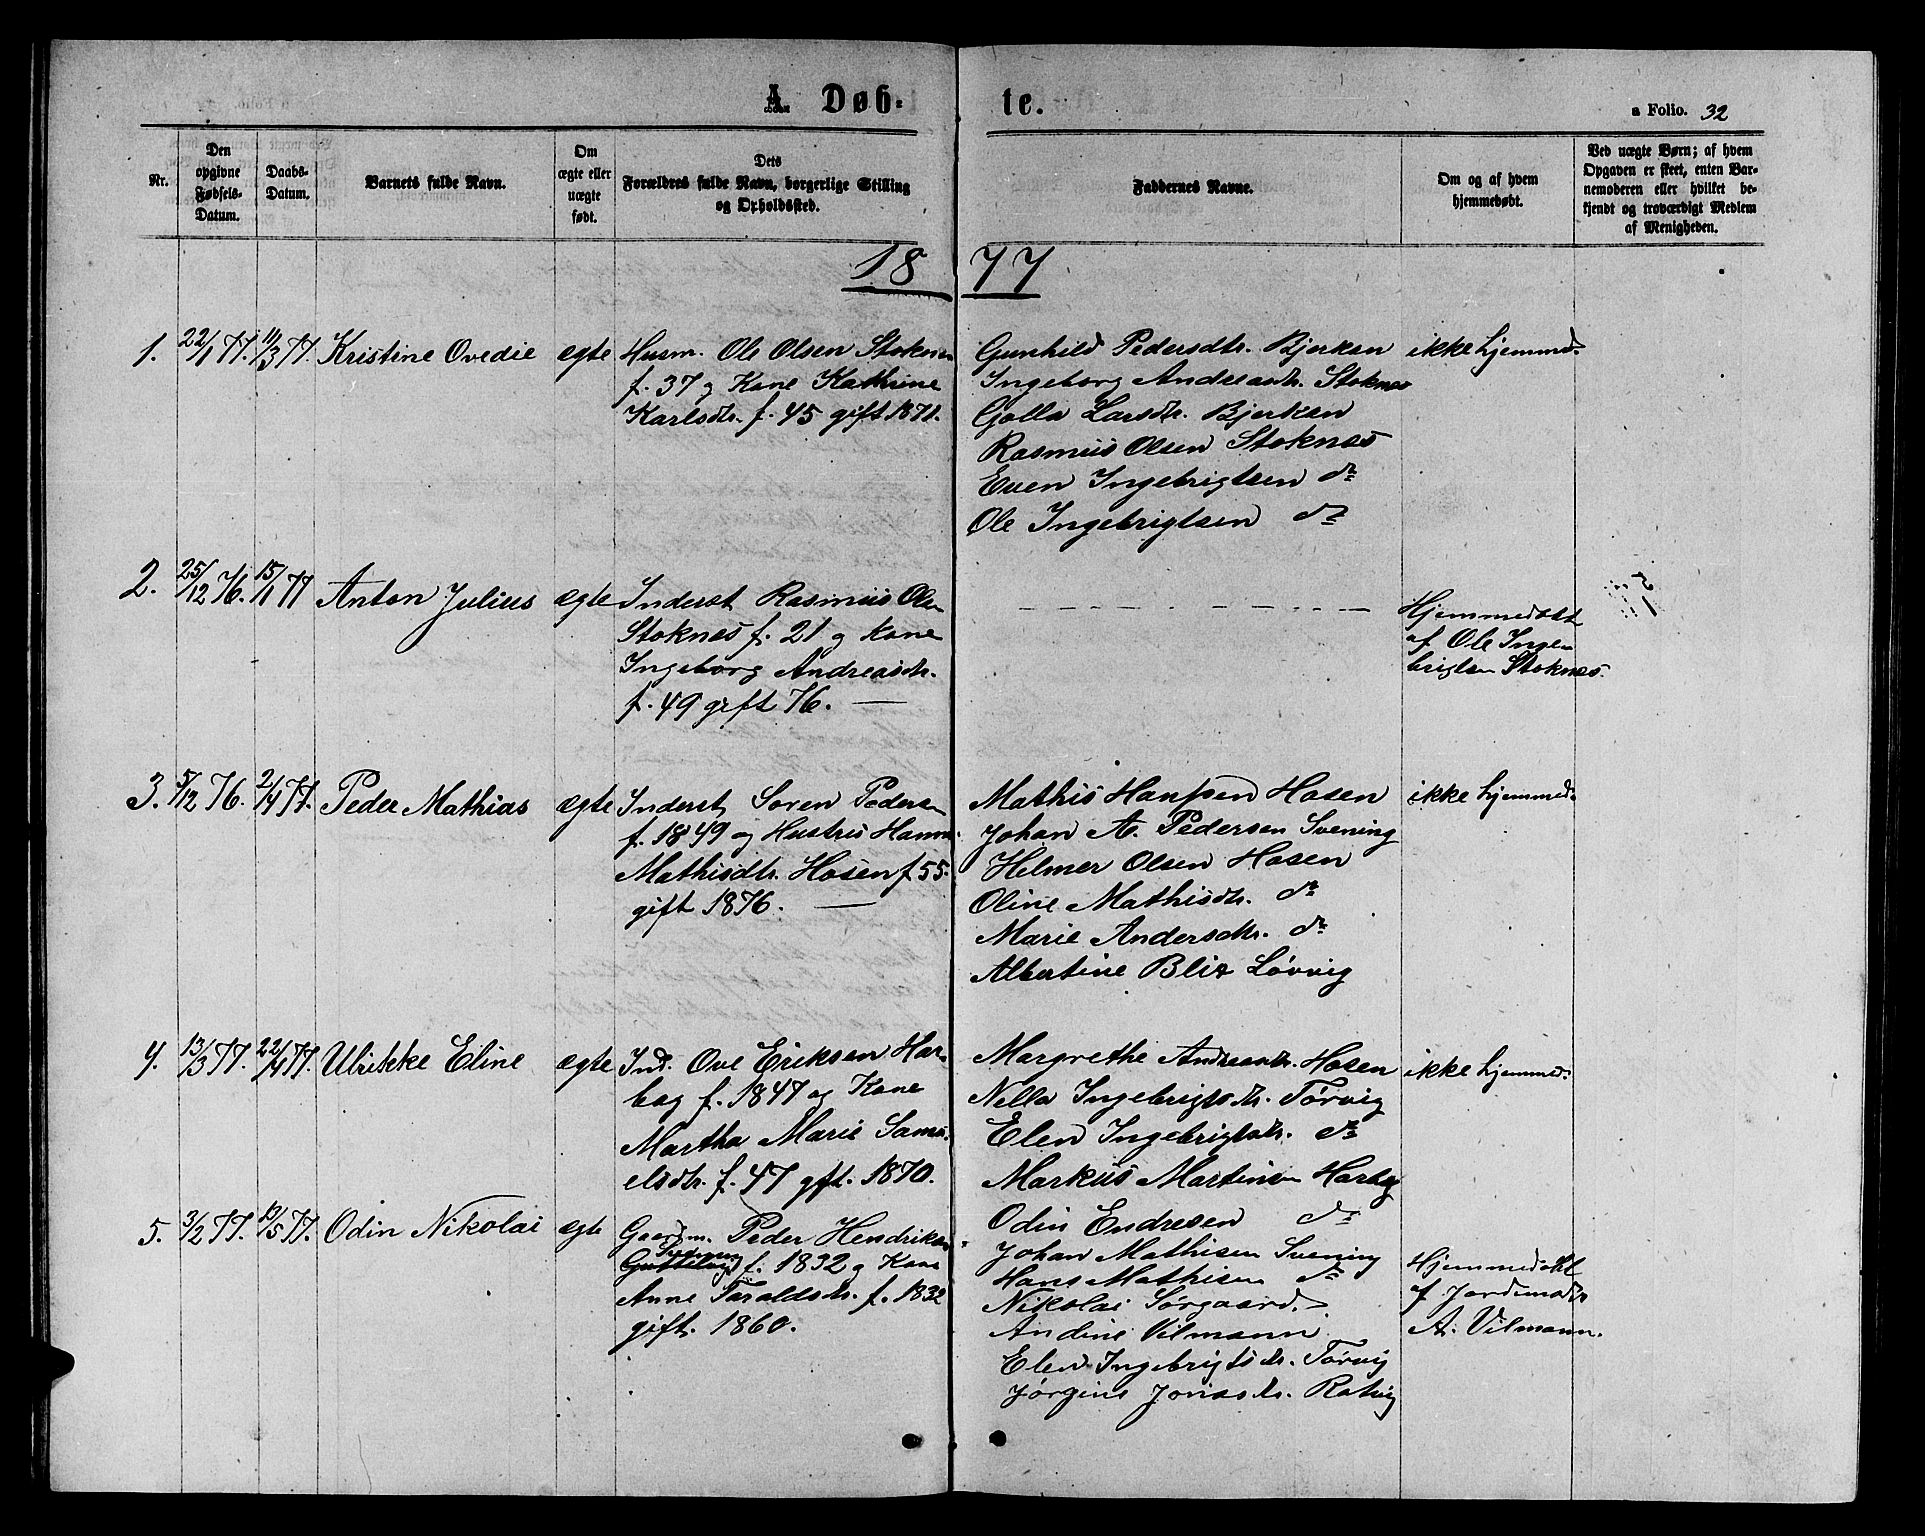 A. Døb- te.
a Folio. 32
Nr.
Den opgivne Fødsels-Datum.
Daabs-Datum.
Barnets fulde Navn.
Om ægte eller uægte født.
Dets Forældres fulde Navn, borgerlige Stilling og Opholdssted.
Faddernes Navne.
Om og af hvem hjemmedøbt.
Ved uægte Børn; af hvem Opgaven er skeet, enten Barnemoderen eller hvilket bekjendt og troværdigt Medlem af Menigheden.
1877
1. 22/1 77. 11/3 77. Kristine Ovedie ægte
Husm. Ole Olsen Stoknes
f. 37 og Kone Kathrine
Karlsdtr. f. 45 gift 1871.
Gunhild Pedersdtr. Bjerkan
Ingeborg Andreasdtr. Stoknes
Golla Larsdtr. Bjerkan
Rasmus Olsen Stoknes
Even Ingebrigtsen do
Ole Ingebrigtsen do
ikke hjemmed.
2. 25/12 76. 15/1 77 Anton Julius ægte
Inderst Rasmus Olsen
Stoknes f. 21 og Kone
Ingeborg Andreasdtr.
f. 49 gift 76. —
Hjemmedøbt
af Ole Inge-
brigtsen Stoknes.
3. 5/12 76. 2/4 77. Peder Mathias ægte
Inderst Soren Pedersen
f. 1849 og Hustru Hanna
Mathisdtr. Hosen f 55.
gift 1876. —
Mathis Hansen Hosen
Johan A. Pedersen Svening
Helmer Olsen Hosen
Oline Mathisdtr. do
Marie Andersdtr. do
Albertine Blix Løvvig
ikke hjemmed.
4. 13/3 77. 22/4 77. Ulrikke Eline ægte
Ind. Ove Eriksen Har-
bag f. 1847 og Kone
Martha Marie Samu-
elsdtr. f. 47 gft. 1870.
Margrethe Andreasdtr. Hosen
Nella Ingebrigtsdtr. Tørvig
Elen Ingebrigtsdtr. do
Markus Martinsen Harbg
Odin Endresen do
ikke hjemmed.
5. 3/2 77. 10/5 77. Odin Nikolai ægte
Gaardm. Peder Hendriksen
f. 1832 og Kone
Anne Taraldsdtr. f. 1832
gift. 1860.
Johan Mathisen Svening
Hans Mathisen do
Nikolai Sørgaard.
Andine Vilmann
Elen Ingebrigtsdtr. Tørvig
Jørgine Jonasdtr. Ratvig
Hjemmedøbt
af Jordemoder
A. Vilmann.